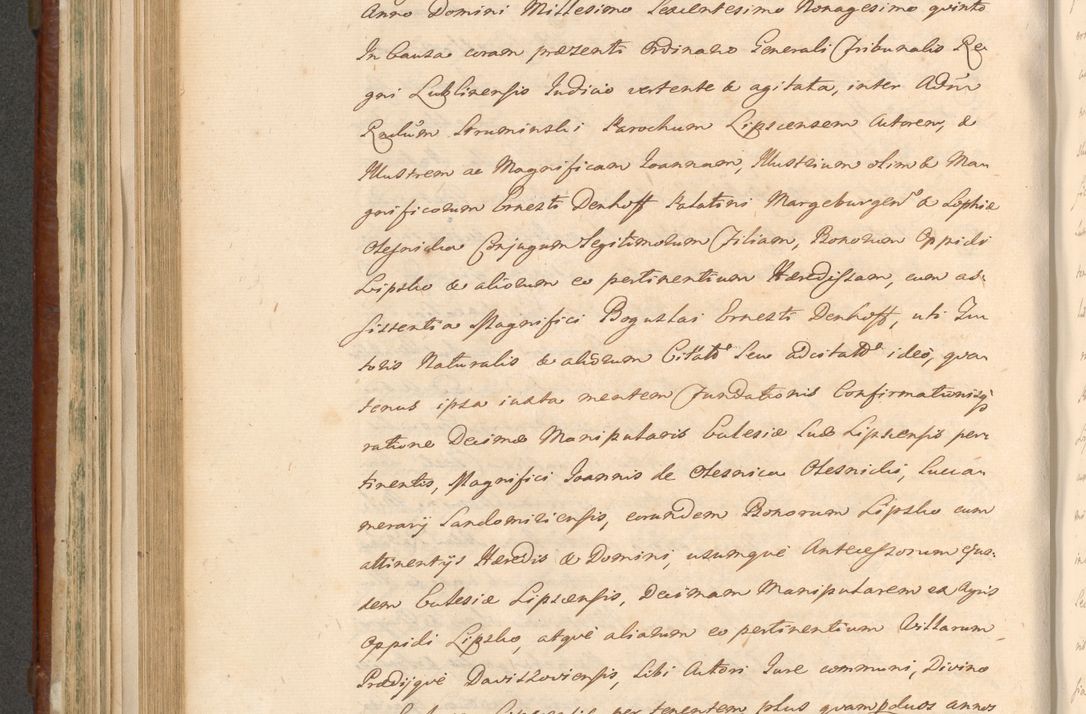 Anno Domini Millesimo Sexcentesimo Nonagesimo quinto
In Causa coram præzenti Ordinario Generali Tribunalis Re-
gni Lublinensis Iudicio vertente & agitata, inter Adm̃
Rṽdum Struminski Parochum Lipscensem Actorem, &
Illustrem ac Magnificam Joannam, Illustrium olim & Ma-
gnificorum Ernesti Denhoff Palatini Margeburgen & Sophiæ
Olesnicka Conjugum Legitimorum Filiam, Bonorum Oppidi
Lipsko & aliorum eo pertinentium Hæredissam, cum as-
sistentia Magnifici Boguslai Ernesti Denhoff, uti Tu-
toris Naturalis & aliorum Citat Seu adcitat ideò, qua-
tenus ipsa iuxta mentem Fundationis Confirmationisq
ratione Decimæ Manipularis Eclesiæ Suæ Lipscensis per-
tinentis, Magnifici Joannis de Olesnica Olesnicki, Succa-
merarij Sandomiriensis, eorundem Bonorum Lipsko cum
attinentijs Hæredis & Domini, usumquè Antecessorum ejus-
dem Eclesiæ Lipscensis, Decimam Manipularem ex Agris
Oppidi Lipsko, atquè aliarum eo pertinentium Villarum
Prædijquè Daviszoviensis, Sibi Actori Iure communi, Divino
per tenentem plus quam duos annos